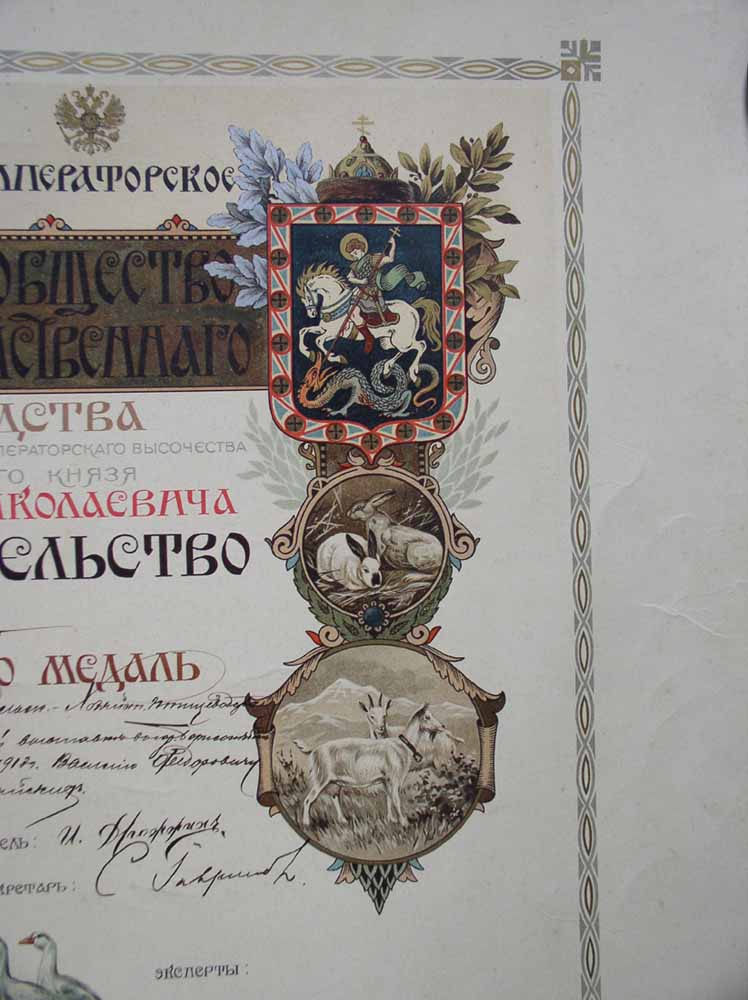 МПЕРАТОРСКОЕ
ОБЩЕСТВО
ЙСТВЕННАГО
ДСТВА
ПЕРАТОРСКАГО ВЫСОЧЕСТВА
ГО КНЯЗЯ
ИКОЛАЕВИЧА
ЕЛЬСТВО
Ю МЕДАЛЬ
птицевод
выставкѣ
Василію Федоровичу
ЕЛЬ: И.
КРЕТАРЬ: С Гаврилов
ЭКСПЕРТЫ: